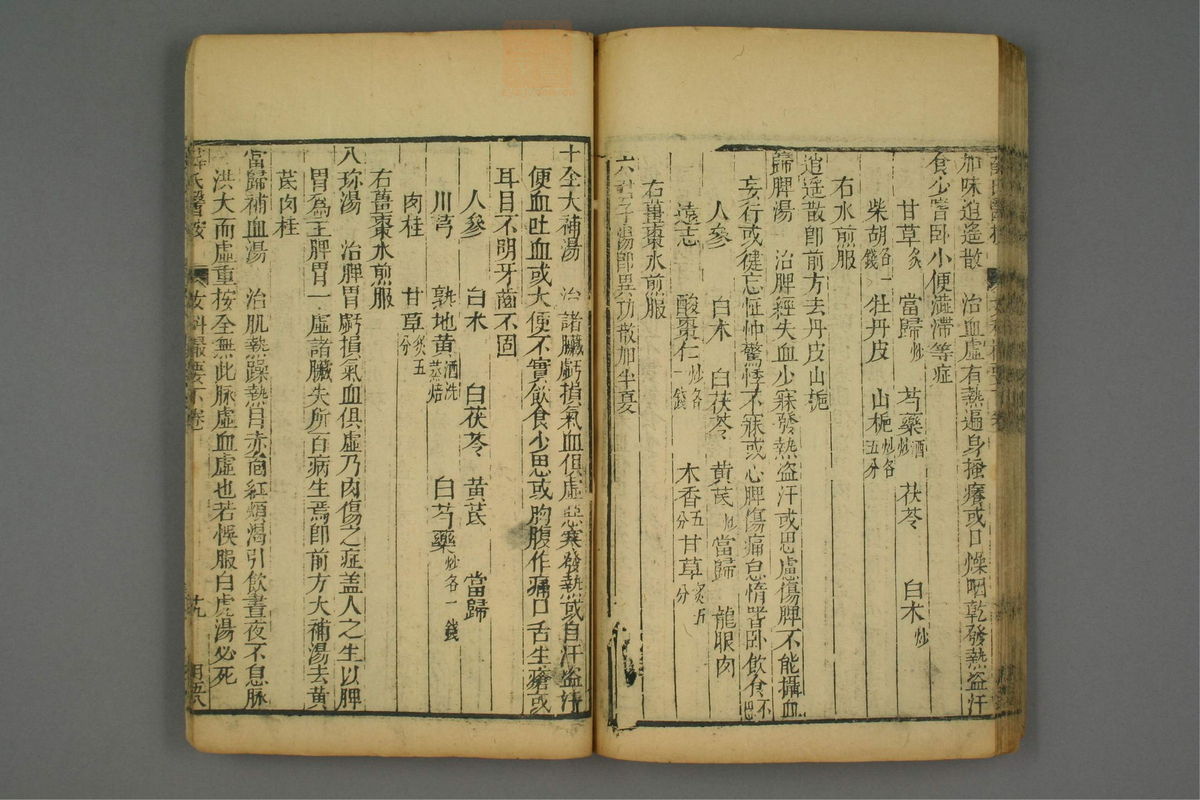 加味逍遙散　治血虛有熱遍身搔癢或口燥咽乾發熱盜汗
食少嗜卧小便澁滯等症
甘草炙　當歸炒　芍藥酒炒　茯苓　白朮炒
柴胡各一錢　牡丹皮　山梔炒各五分
右水煎服
逍遙散即前方去丹皮山梔
歸脾湯　治脾經失血少寐發熱盜汗或思慮傷脾不能攝血
妄行或健忘怔忡驚悸不寐或心脾傷痛怠惰嗜卧飲食不
人參　白朮　白茯苓　黃芪炒　當歸　龍眼肉
遠志　酸棗仁炒各一錢　木香五分　甘草炙五分
右薑棗水煎服
六君子湯即異功散加半夏
十全大補湯　治諸臟虧損氣血俱虛惡寒發熱或自汗盜汗
便血吐血或大便不實飲食少思或胸腹作痛口舌生瘡或
耳目不明牙齒不固
人參　白朮　白茯苓　黃芪　當歸
川芎　熟地黃酒洗蒸焙　白芍藥炒各一錢
肉桂　甘草炙五分
右薑棗水煎服
八珍湯　治脾胃虧損氣血俱虛乃內傷之症盖人之生以脾
胃為主脾胃一虛諸臟失所百病生焉即前方大補湯去黃
芪肉桂
當歸補血湯　治肌熱躁熱目赤面紅煩渴引飲晝夜不息脉
洪大而虛重按全無此脉虛血虛也若悞服白虎湯必死
薛氏醫按　女科撮要下卷　十九